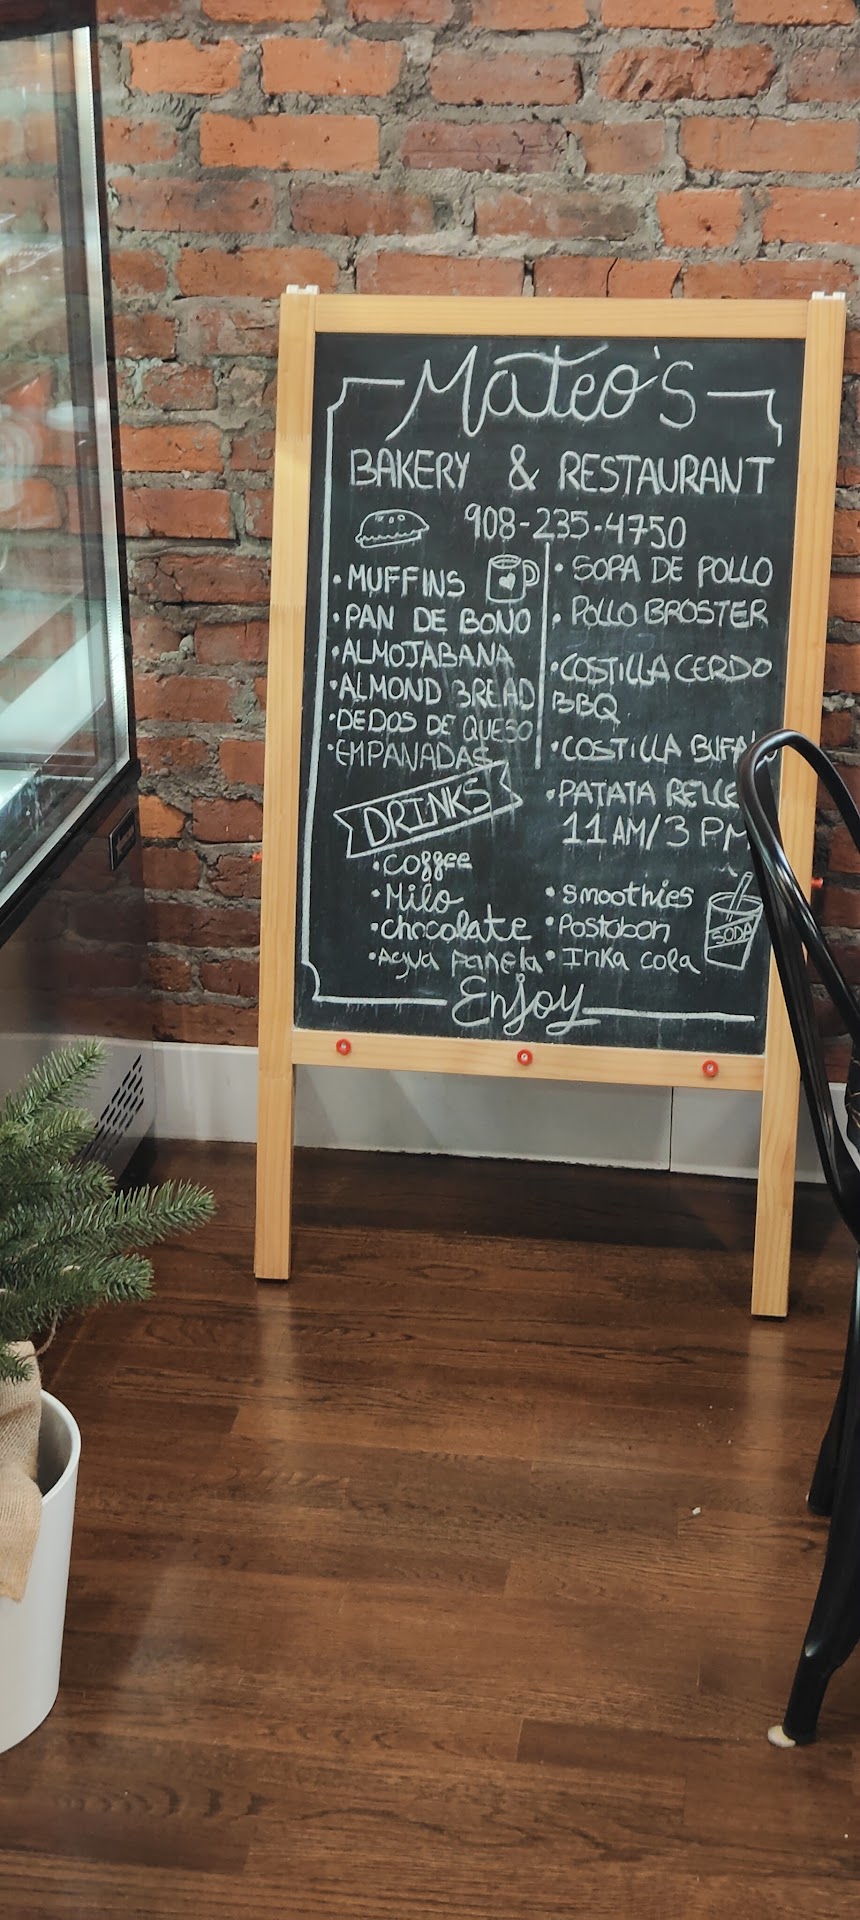 Mateo's
BAKERY & RESTAURANT
908-235-4750
• MUFFINS
• PAN DE BONO
• ALMOJABANA
• ALMOND BREAD
• DEDOS DE QUESO
• EMPANADAS
• SOPA DE POLLO
• POLLO BROSTER
• COSTILLA CERDO
BBQ
• COSTILLA
• PATATA
11 AM/3 PM
DRINKS
• coffee
• Milo
• chocolate
• Agua Panela
• Smoothies
• Postobon
• Inka cola
SODA
Enjoy